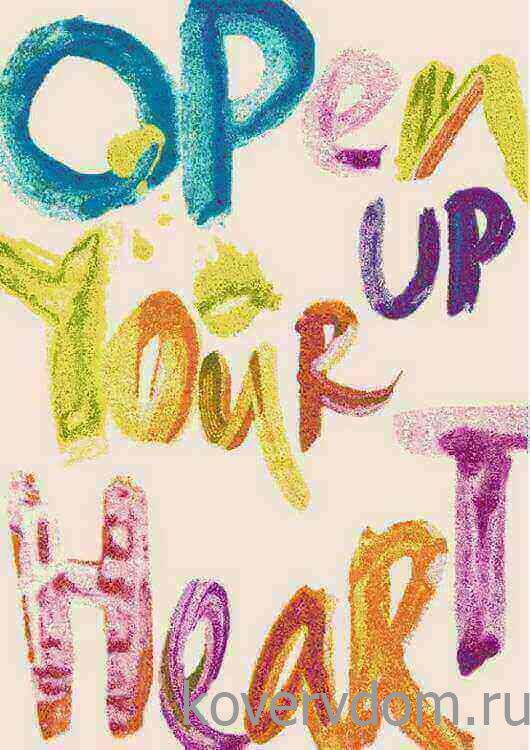 Open
UP
YOUR
HeART
kovervdom.ru